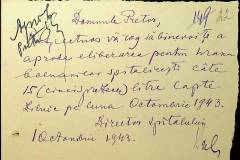 Domnule Pretor,
149
22
vă rog să binevoiți a
aproba eliberarea pentru hrana
bolnavilor spitalicești câte
15 (cincisprezece) litre lapte
zilnic pe luna Octombrie 1943.
Directorul Spitalului
1 Octombrie 1943.